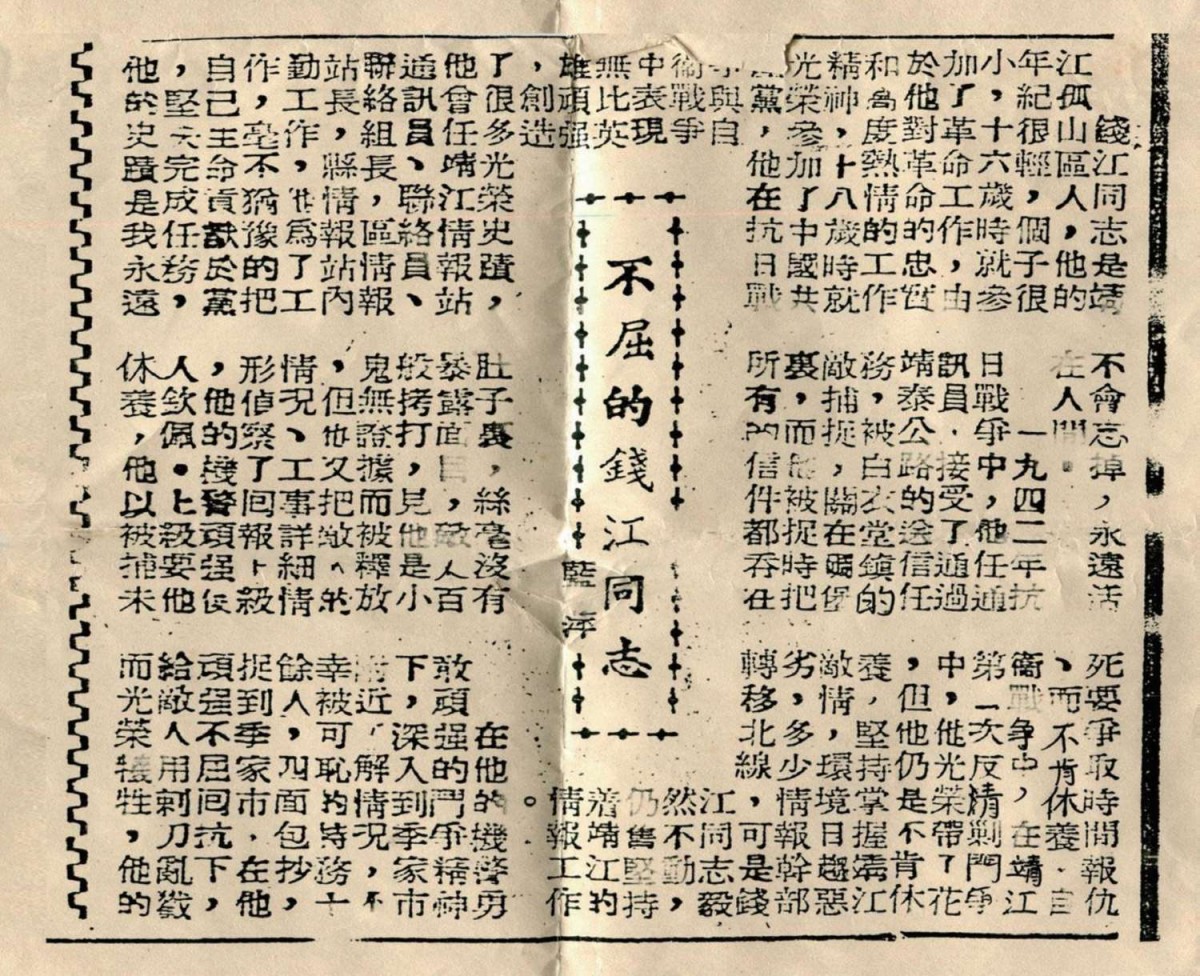 不屈的錢江同志
藍
錢江同志是靖
江孤山區人，他的
年紀很輕，個子很
小，十六歲時就參
加了革命工作，由
於他對革命的忠實
和為度熱情的工作
精神，十八歲時就
光榮參加了中國共
黨，他在抗日戰
爭與自
衞戰爭
中表現
無比英
雄頑强
，創造
了很多光榮史蹟，
他曾任靖江情報站
通訊員、聯絡員、
聯絡組長，區情報
站長，縣情報站內
勤工作，他為了工
作，毫不猶豫的把
自己生命貢獻於黨
，堅决完成任務，
他的史蹟是我永遠
不會忘掉，永遠活
在人間。
一九四二年抗
日戰爭中，他任通
訊員．接受了通過
靖泰公路的送信任
務，被白衣堂鎮的
敵捕捉，關在碉堡
裏，而他被捉時把
所有的信件都吞在
肚子裏，絲毫沒有
暴露面目，敵人百
般拷打，見他是小
鬼無證據而被釋放
，但他又把敵人的
情況、工事詳細情
形偵察了回報上級
，他的機警頑强使
人欽佩。上級要他
休養，他以被捕未
死要爭取時間報仇
、而不肯休養．自
衞戰爭中，在靖江
第一次反清剿鬥爭
中，他光榮帶了花
，但他仍是不肯休
養，堅持掌握靖江
敵情，環境日趨惡
劣，多少情報幹部
轉移北線，可是錢
江同志毅
然不動，
仍舊堅持
着靖江的
情報工作
。
在他的機警勇
敢頑强的鬥爭精神
下，深入到季家市
附近了解情況，不
幸被可恥的特務十
餘人，四面包抄，
捉到季家市．在他
頑强不屈同抗下，
給敵人用刺刀亂戳
而光榮犧牲，他的